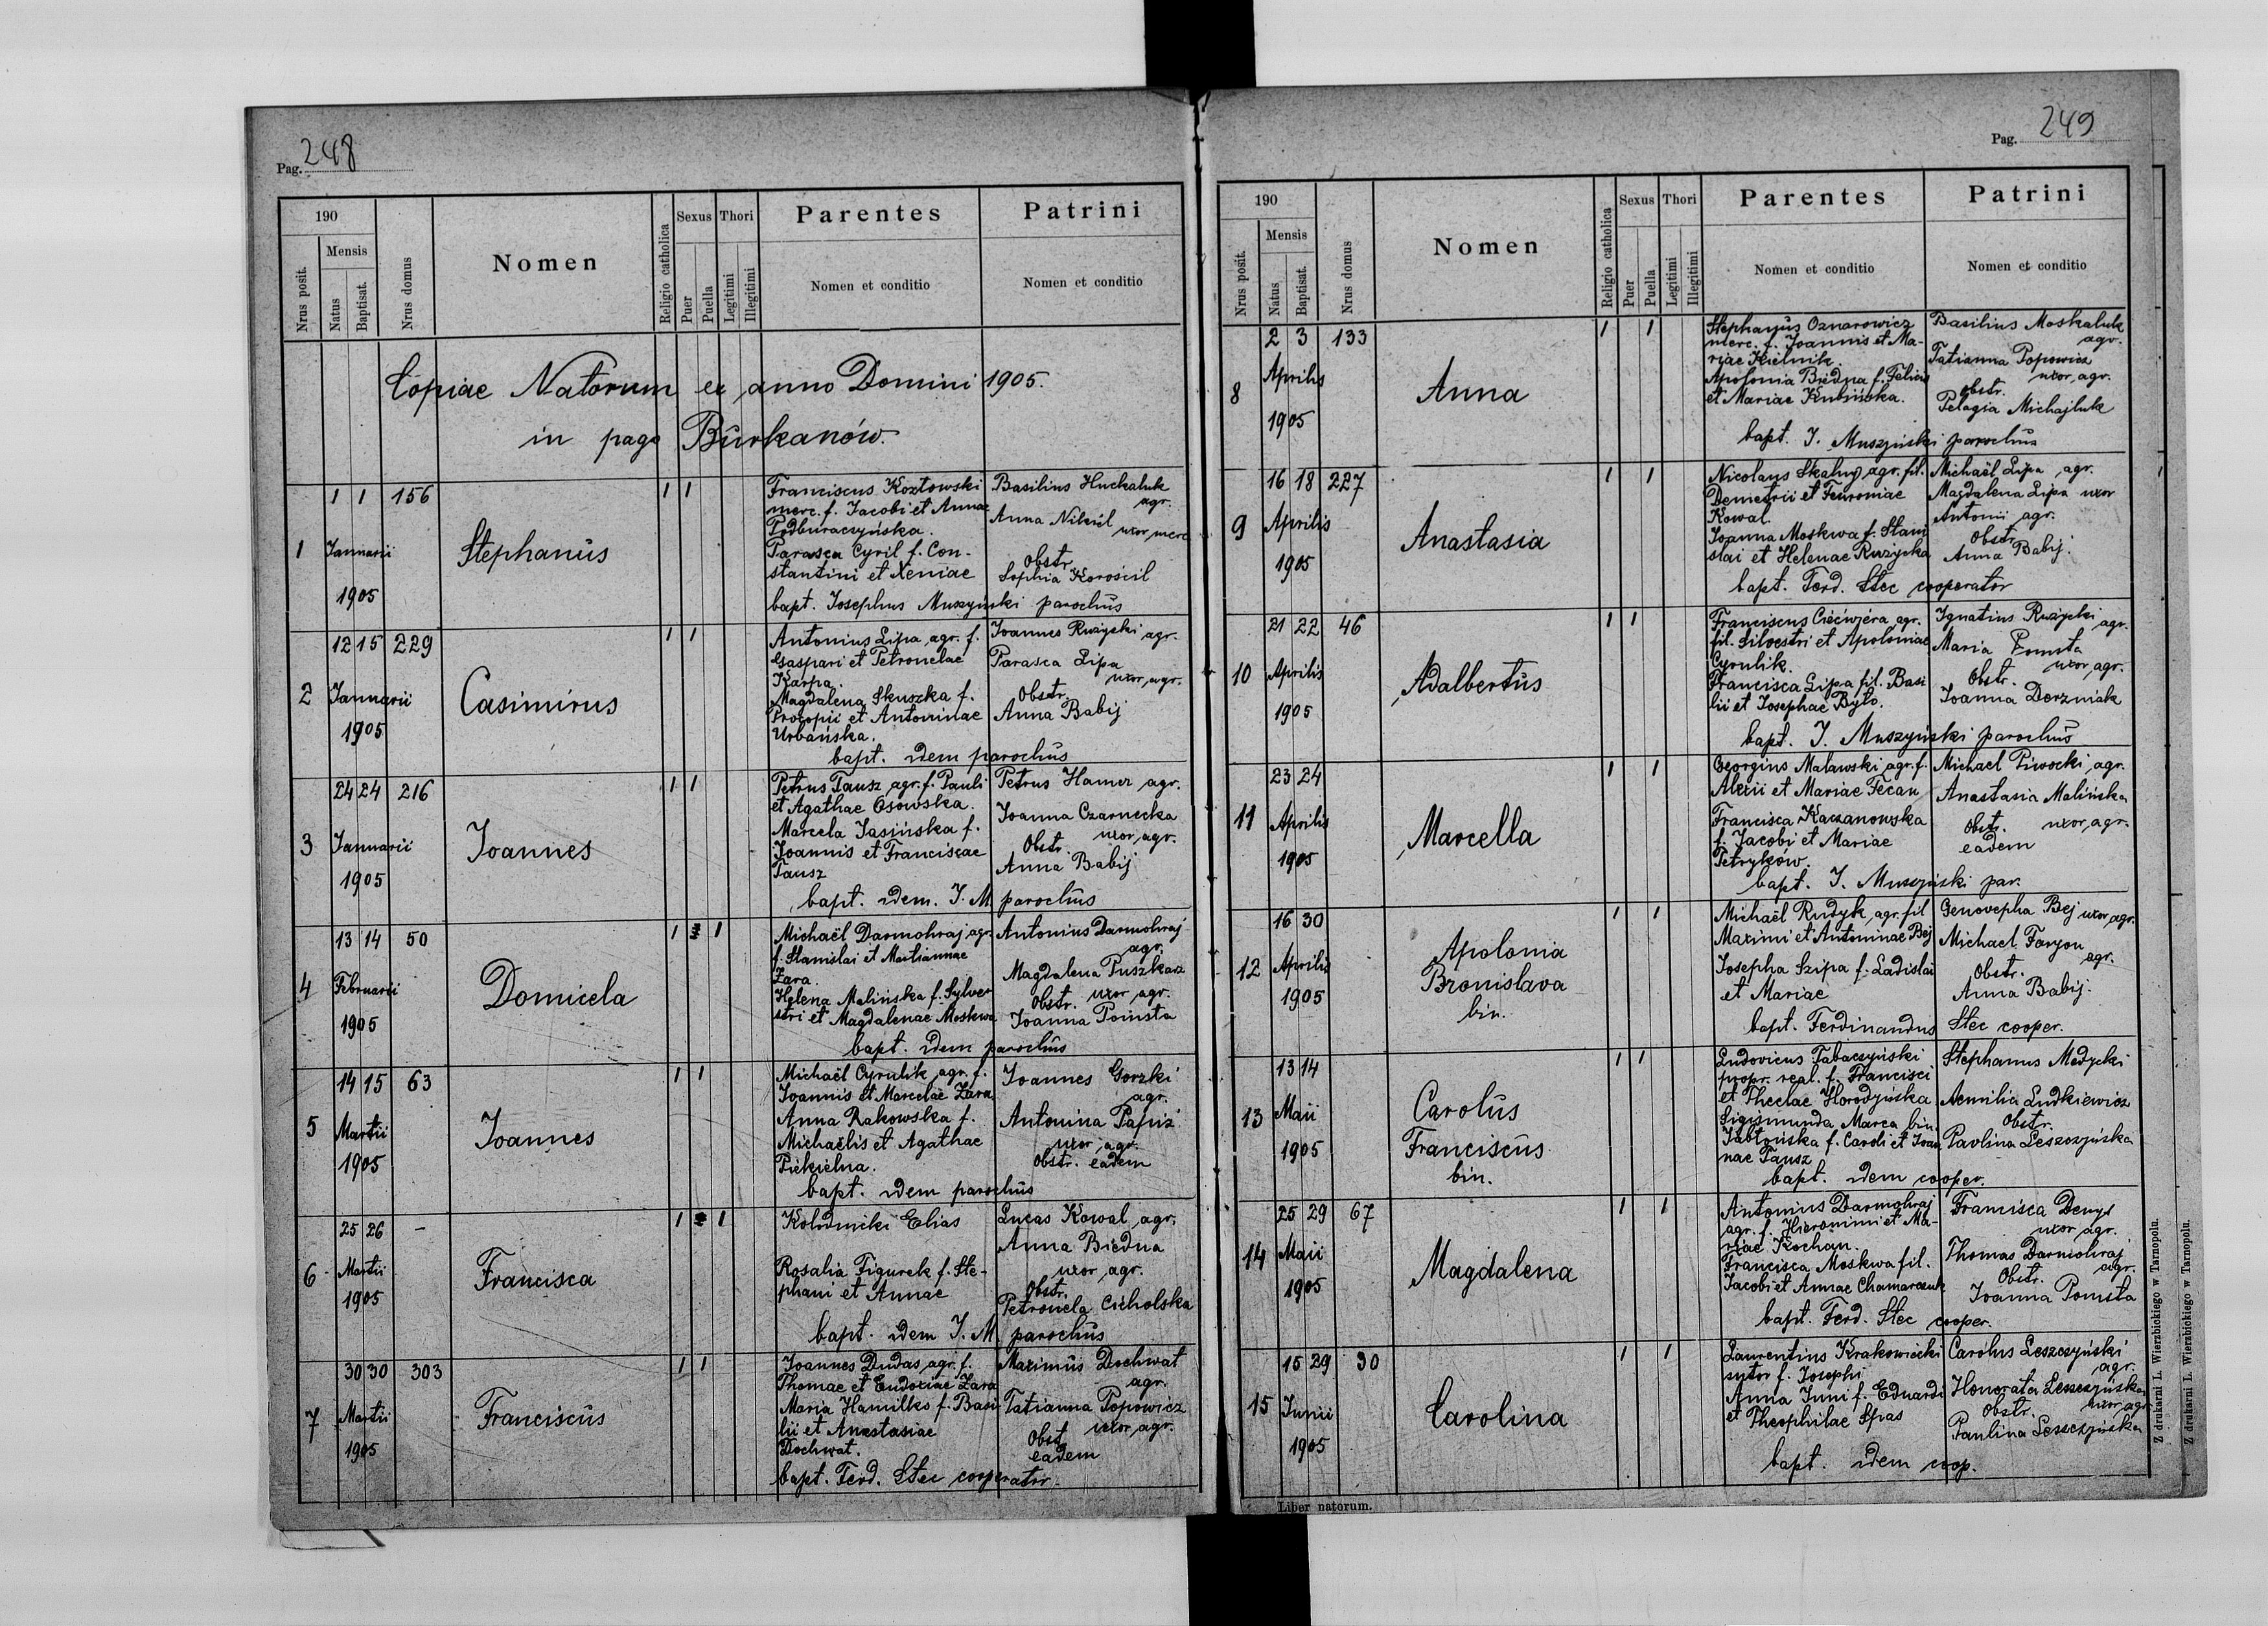 Pag. 248
190
Nrus posit.
Mensis
Natus
Baptisat.
Nrus domus
Nomen
Religio catholica
Sexus
Puer
Puella
Thori
Legitimi
Illegitimi
Parentes
Nomen et conditio
Patrini
Nomen et conditio
Copiae Natorum ex anno Domini 1905.
in pago Burkanów.
1
1 1 156
Januarii
1905
Stephanus
1 1
Franciscus Kozłowski
merc. f. Jacobi et Annae
Podburaczyńska.
Parasca Cyril f. Con-
stantini et Xeniae
Basilius Huckaluk
agr.
Anna Nikiel
uxor merc
Obstr.
Sophia Korościl
bapt. Josephus Muszyński parochus
2
12 15 229
Januarii
1905
Casimirus
1 1
Antonius Lipa, agr. f.
Gaspari et Petronelae
Karpa.
Magdalena Skuszka f.
Procopii et Antoninae
Urbańska.
Joannes Rużycki agr.
Parasca Lipa
uxor, agr.
Obstr.
Anna Babij
bapt. idem parochus
3
24 24 216
Januarii
1905
Joannes
1 1
Petrus Tausz, agr. f. Pauli
et Agathae Osowska.
Marcela Jasińska f.
Joannis et Franciscae
Tausz
Petrus Hamer agr.
Joanna Czarnecka
uxor, agr.
Obstr.
Anna Babij
bapt. idem. J. M. parochus
4
13 14 50
Februarii
1905
Domicela
1 1
Michaël Darmohraj agr.
f. Stanislai et Martiannae
Zara.
Helena Malińska f. Sylve-
stri et Magdalenae Moskwa
Antonius Darmohraj
agr.
Magdalena Puszkar
uxor agr.
Obstr.
Joanna Pomsta
bapt. idem parochus
5
14 15 63
Martii
1905
Joannes
1 1
Michaël Cyrulik, agr. f.
Joannis et Marcelae Zara
Anna Rakowska f.
Michaëlis et Agathae
Piekielna.
Joannes Gorzki
agr.
Antonina Papiż
uxor agr.
Obstr. eadem
bapt. idem parochus
6
25 26 -
Martii
1905
Francisca
1 1
Kolodnicki Elias
Rosalia Figurek f. Ste-
phani et Annae
Lucas Kowal agr.
Anna Biedna
uxor agr.
Obstr.
Petronela Cicholska
bapt. idem J. M. parochus
7
30 30 303
Martii
1905
Franciscus
1 1
Joannes Dudas, agr. f.
Thomae et Eudoxiae Zara
Maria Hamilko f. Basi-
lii et Anastasiae
Dochwat.
Maximus Dochwat
agr.
Tatianna Popowicz
uxor agr.
Obst
eadem
bapt. Ferd. Stec cooperator.
Pag. 249
190
Nrus posit.
Mensis
Natus
Baptisat.
Nrus domus
Nomen
Religio catholica
Sexus
Puer
Puella
Thori
Legitimi
Illegitimi
Parentes
Nomen et conditio
Patrini
Nomen et conditio
8
2 3 133
Aprilis
1905
Anna
1 1
Stephanus Oznarowicz
merc. f. Joannis et Ma-
riae Kielnik.
Apolonia Biedna f. Felicis
et Mariae Kubińska.
Basilius Moskaluk
agr.
Tatianna Popowicz
uxor, agr.
Obstr.
Pelagia Michajluk
bapt. J. Muszyński parochus
9
16 18 227
Aprilis
1905
Anastasia
1 1
Nicolaus Skalny agr. fil.
Demetrii et Feuroniae
Kowal.
Joanna Moskwa f. Stani
slai et Helenae Rużycka
Michaël Lipa agr.
Magdalena Lipa uxor
Antonii agr.
Obstr.
Anna Babij.
bapt. Ferd. Stec cooperator
10
21 22 46
Aprilis
1905
Adalbertus
1 1
Franciscus Ciećwiera agr.
fil. Silvestri et Apoloniae
Cyrulik.
Francisca Lipa fil. Basi
lii et Josephae Było.
Ignatius Rużycki agr.
Maria Pomsta
uxor, agr.
Obstr.
Joanna Dorzniak
bapt. J. Muszyński parochus
11
23 24
Aprilis
1905
Marcella
1 1
Georgius Malawski, agr. f.
Alexii et Mariae Fecan
Francisca Kaczanowska
f. Jacobi et Mariae
Petryków.
Michael Piwocki, agr.
Anastasia Malińska
uxor, agr.
Obstr.
eadem
bapt. J. Muszyński par.
12
16 30
Aprilis
1905
Apolonia
Bronislava
bin.
1 1
Michaël Rudyk, agr. fil
Maximi et Antoninae Bej
Josepha Szipa f. Ladislai
et Mariae
Genovepha Bej uxor, agr.
Michael Faryon
agr.
Obstr.
Anna Babij.
bapt. Ferdinandus Stec cooper.
13
13 14
Maii
1905
Carolus
Franciscus
bin.
1 1
Ludovicus Tabaczyński
propr. real. f. Francisci
et Theclae Horodyńska
Sigismunda Marca bin.
Jabłońska f. Caroli et Joan
nae Tausz
Stephanus Medycki
Aemilia Ludkiewicz
Obstr.
Pavlina Leszczyńska
bapt. idem cooper.
14
25 29 67
Maii
1905
Magdalena
1 1
Antonius Darmohraj
agr. f. Hieronimi et Ma-
riae Kochan.
Francisca Moskwa fil.
Jacobi et Annae Chamarczuk
Francisca Denys
uxor agr.
Thomas Darmohraj
agr.
Obstr.
Joanna Pomsta
bapt. Ferd. Stec cooper.
15
15 29 30
Junii
1905
Carolina
1 1
Laurentius Krakowiecki
sutor f. Josephi
Anna Juni f. Eduardi
et Theophilae Spas
Carolus Leszczyński
agr.
Honorata Leszczyńska
uxor agr
Obstr.
Paulina Leszczyńska
bapt. idem coop.
Liber natorum.
Z drukarni L. Wierzbickiego w Tarnopolu.
Z drukarni L. Wierzbickiego w Tarnopolu.